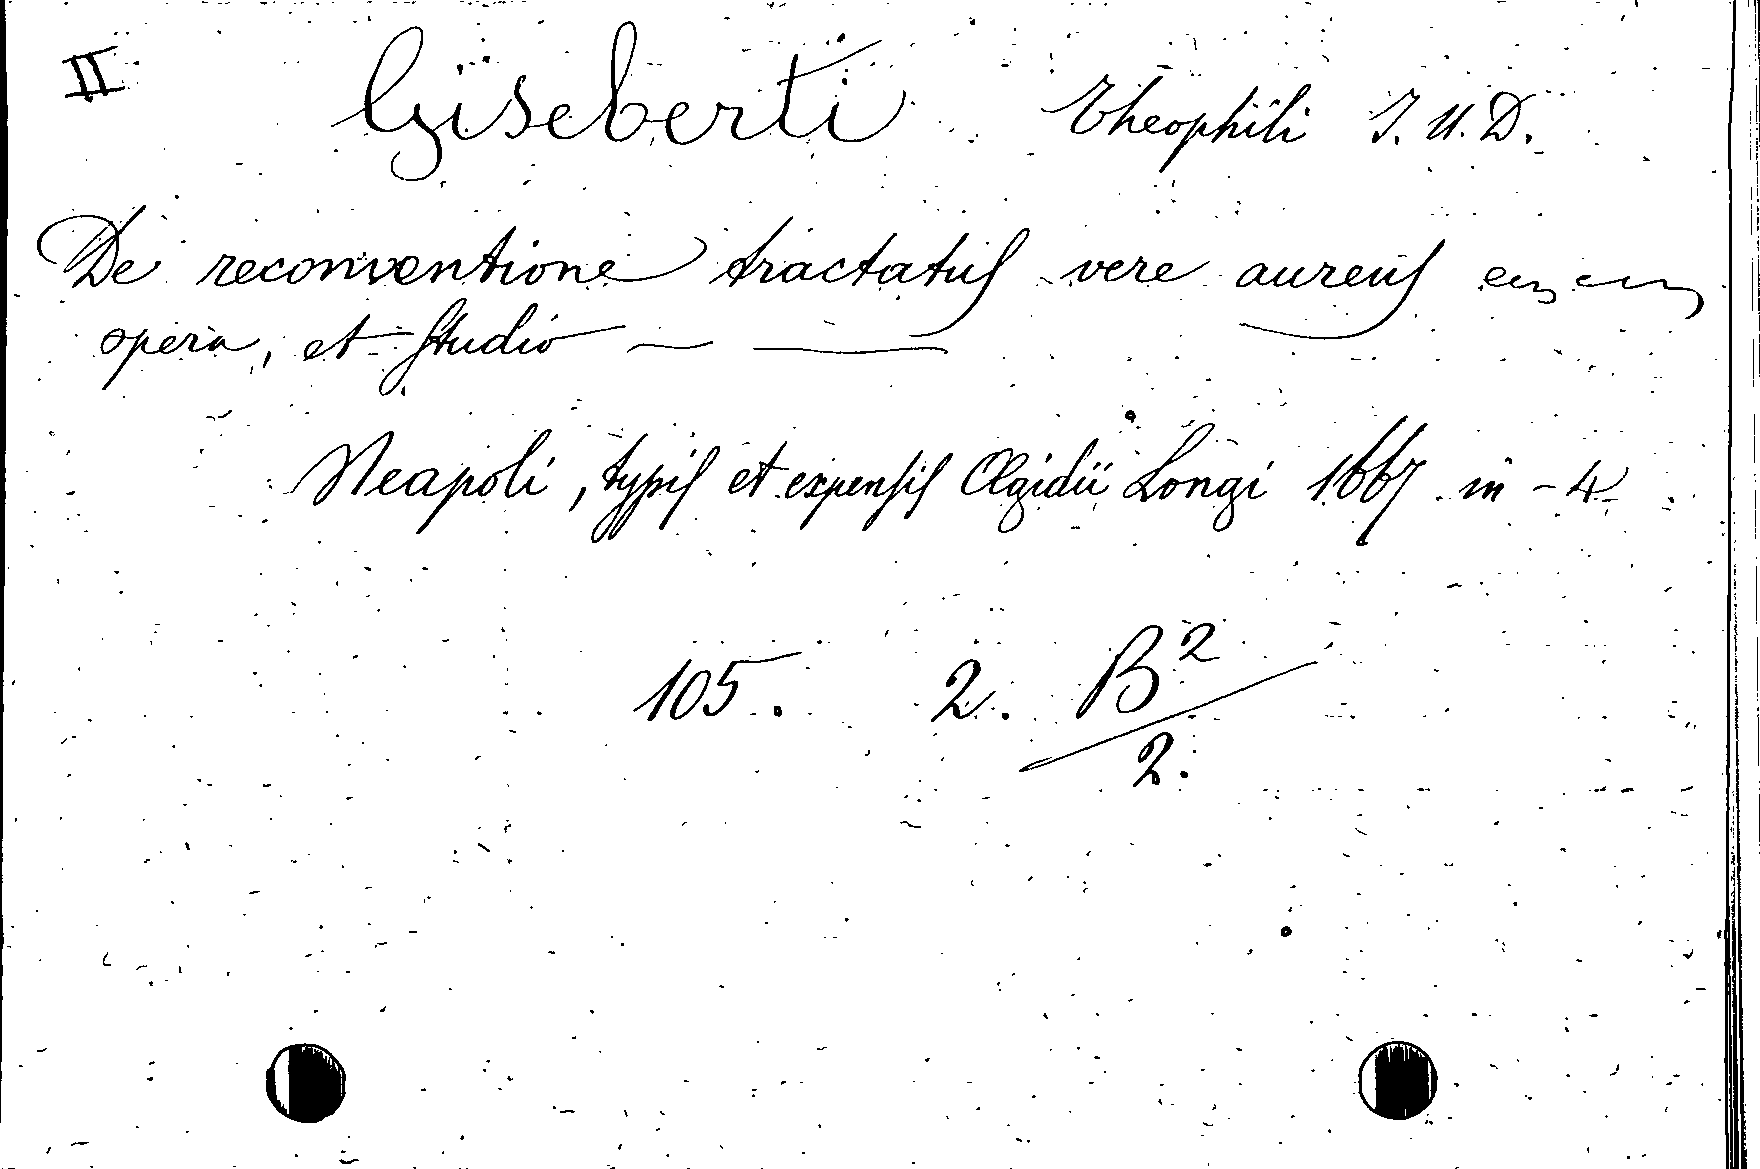 II Giseberti Theophili I. U. D.
De reconventione tractatus vere aureus
opera, et studio — —
Neapoli, typis et expensis Ægidii Longi 1667 in - 4
105. 2. B²/2.